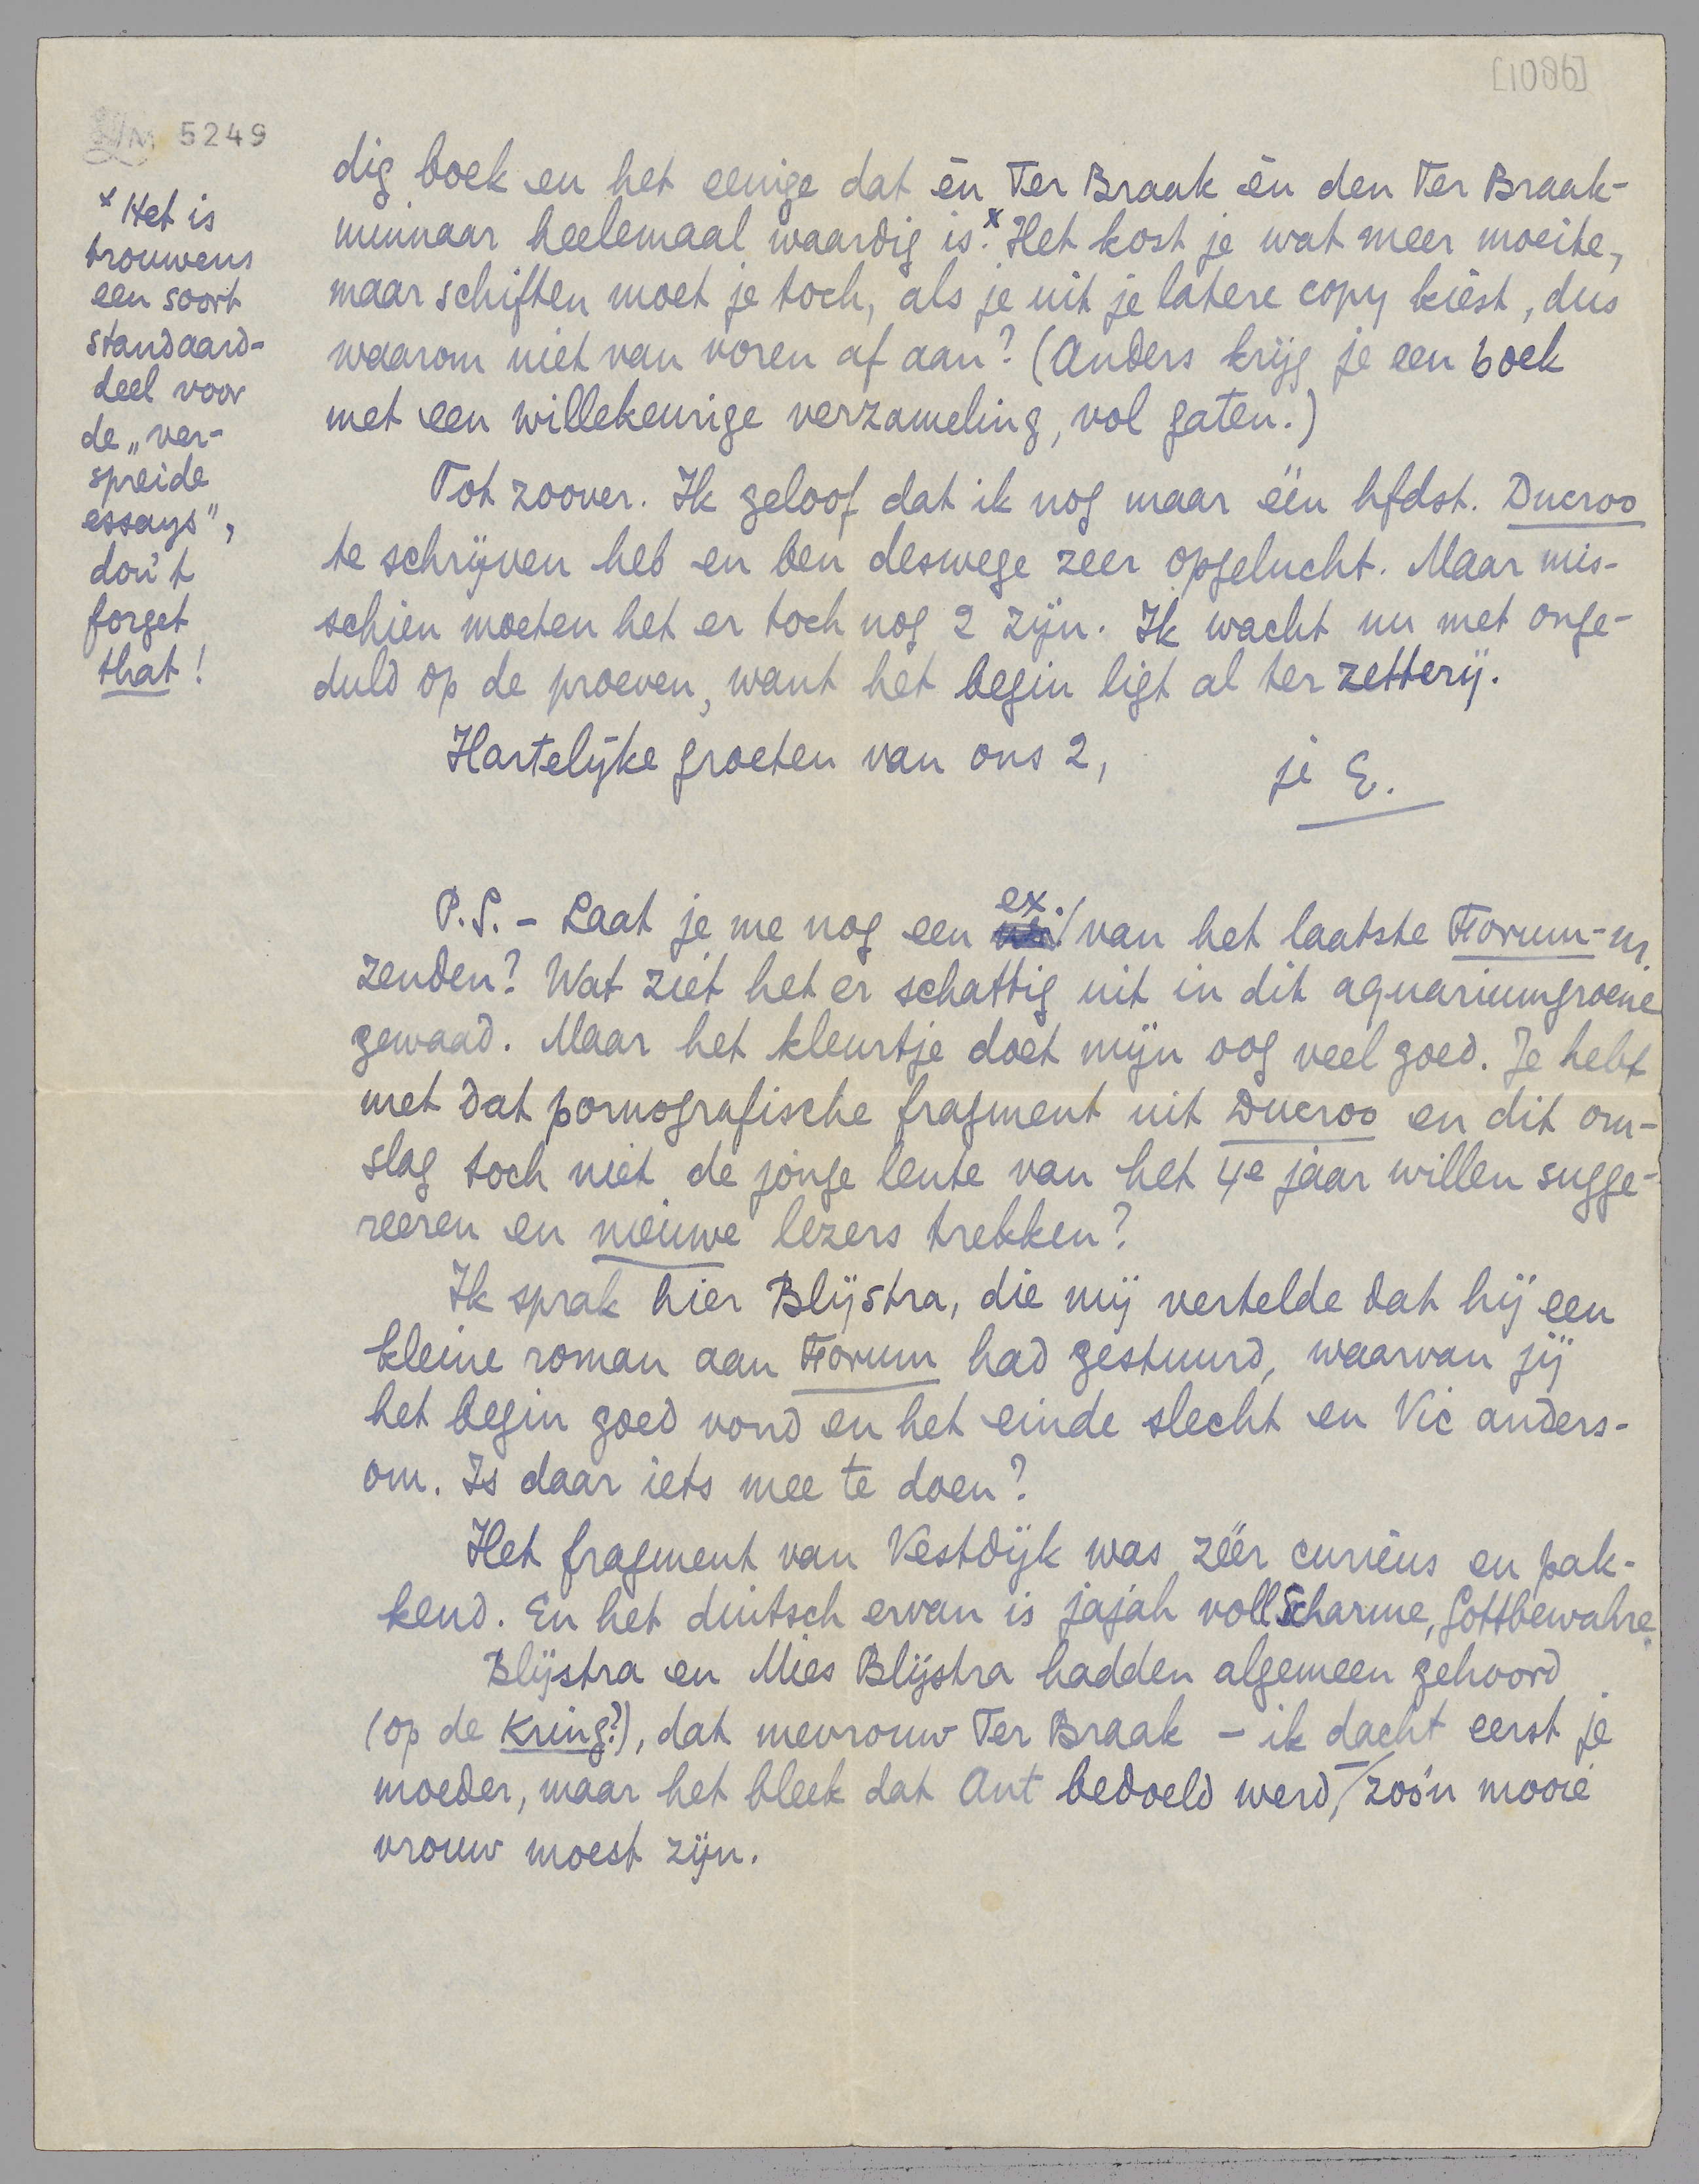 [1086]
LM 5249
dig boek en het eenige dat én Ter Braak én den Ter Braak-
minnaar heelemaal waardig is.x Het kost je wat meer moeite,
maar schiften moet je toch, als je uit je latere copy kiest, dus
waarom niet van voren af aan? (Anders krijg je een boek
met een willekeurige verzameling, vol gaten.)
x Het is
trouwens
een soort
standaard-
deel voor
de „ver-
spreide
essays",
don't
forget
that!
Tot zoover. Ik geloof dat ik nog maar één hfdst. Ducroo
te schrijven heb en ben deswege zeer opgelucht. Maar mis-
schien moeten het er toch nog 2 zijn. Ik wacht nu met onge-
duld op de proeven, want het begin ligt al ter zetterij.
Hartelijke groeten van ons 2,
je E.
P.S. - Laat je me nog een ex. van het laatste Forum-nr.
zenden? Wat ziet het er schattig uit in dit aquariumgroene
gewaad. Maar het kleurtje doet mijn oog veel goed. Je hebt
met dat pornografische fragment uit Ducroo en dit om-
slag toch niet de jonge lente van het 4e jaar willen sugge-
reeren en nieuwe lezers trekken?
Ik sprak hier Blijstra, die mij vertelde dat hij een
kleine roman aan Forum had gestuurd, waarvan jij
het begin goed vond en het einde slecht en Vic anders-
om. Is daar iets mee te doen?
Het fragment van Vestdijk was zéér curieus en pak-
kend. En het duitsch ervan is jajah voll Scharme, Gottbewahre.
Blijstra en Mies Blijstra hadden algemeen gehoord
(op de Kring?), dat mevrouw Ter Braak - ik dacht eerst je
moeder, maar het bleek dat Ant bedoeld werd, - zoo'n mooie
vrouw moest zijn.